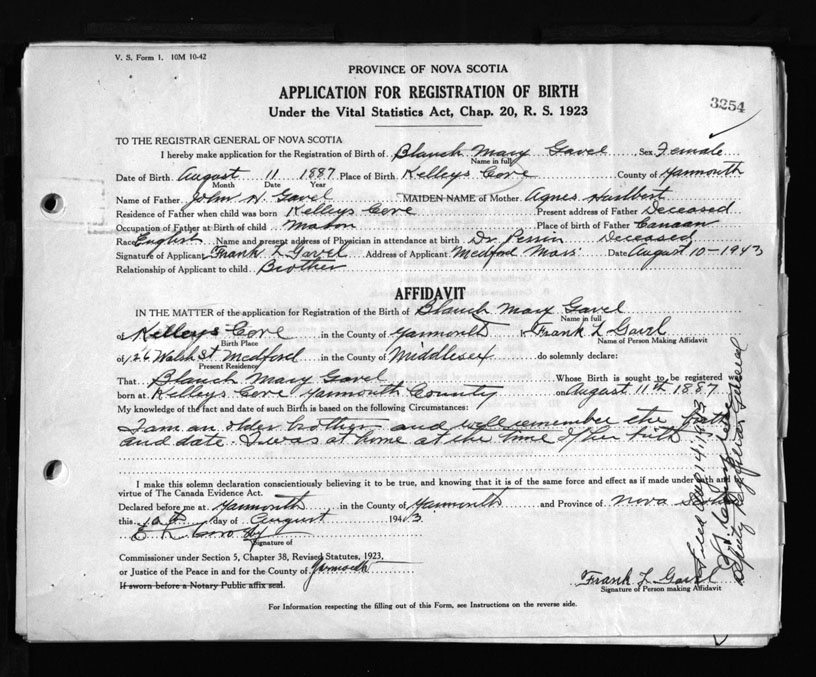 V. S. Form 1. 10M 10-42
PROVINCE OF NOVA SCOTIA
APPLICATION FOR REGISTRATION OF BIRTH
3254
Under the Vital Statistics Act, Chap. 20, R. S. 1923
TO THE REGISTRAR GENERAL OF NOVA SCOTIA
I hereby make application for the Registration of Birth of Blanch Mary Gavel Sex Female
Name in full
Date of Birth August 11 1887 Place of Birth Kelleys Cove County of Yarmouth
Month Date Year
Name of Father John W. Gavel MAIDEN NAME of Mother Agnes Hurlbert
Residence of Father when child was born Kelleys Cove Present address of Father Deceased
Occupation of Father at Birth of child Mason Place of birth of Father Canaan
Race English Name and present address of Physician in attendance at birth Dr. Perrin Deceased
Signature of Applicant Frank L Gavel Address of Applicant Medford Mass Date August 10-1943
Relationship of Applicant to child Brother
AFFIDAVIT
IN THE MATTER of the application for Registration of the Birth of Blanch Mary Gavel
Name in full
of Kelleys Cove in the County of Yarmouth Frank L Gavel
Birth Place Name of Person Making Affidavit
of 126 Walsh St Medford in the County of Middlesex do solemnly declare:
Present Residency
That Blanch Mary Gavel Whose Birth is sought to be registered was
born at Kelleys Cove Yarmouth County on August 11th 1887
My knowledge of the fact and date of such Birth is based on the following Circumstances:
I am an older brother and well remember the
and date. I was at home at the time of her birth
I make this solemn declaration conscientiously believing it to be true, and knowing that it is of the same force and effect as if made under oath and
virtue of The Canada Evidence Act.
Declared before me at Yarmouth in the County of Yarmouth and Province of Nova Scotia
this 10th day of August 1943
Signature of
Commissioner under Section 5, Chapter 38, Revised Statutes, 1923,
or Justice of the Peace in and for the County of Yarmouth
If sworn before a Notary Public affix seal.
Frank L Gavel
Signature of Person making Affidavit
For Information respecting the filling out of this Form, see Instructions on the reverse side.
Filed Aug 14, 1943
Deputy Registrar General